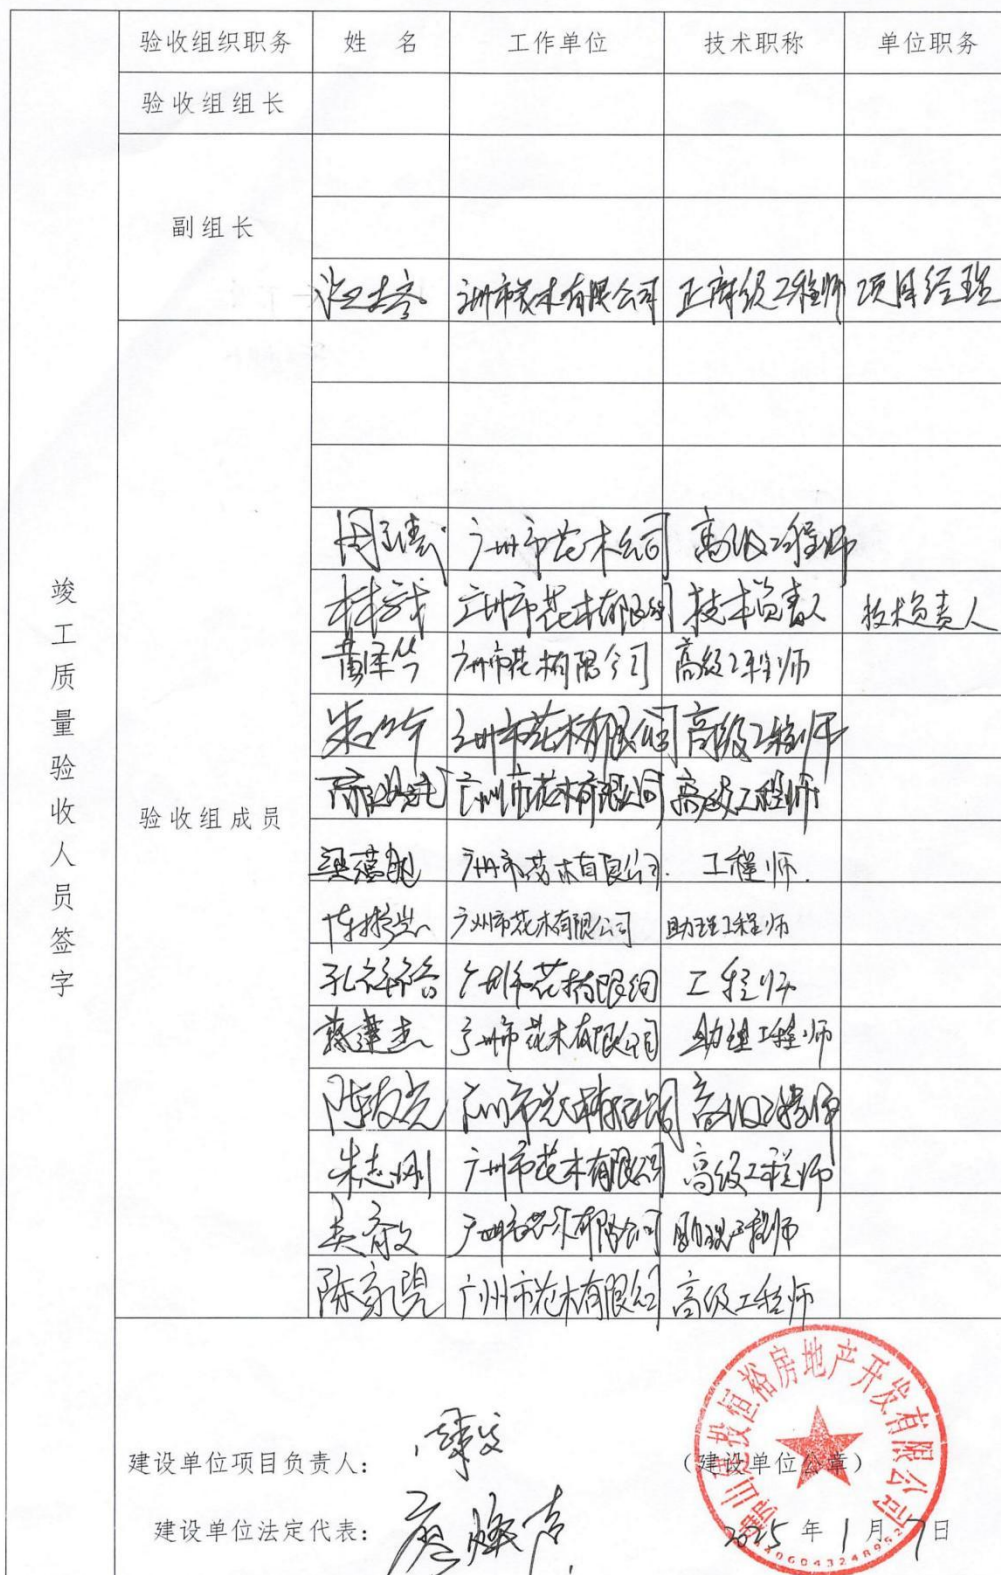 验收组织职务 姓 名 工作单位 技术职称 单位职务
验收组组长
副组长
广州市花木有限公司 正高级工程师 项目经理
广州市花木公司 高级工程师
林斌 广州市花木有限公司 技术负责人 技术负责人
广州市花木有限公司 高级工程师
广州市花木有限公司 高级工程师
广州市花木有限公司 高级工程师
验收组成员
广州市花木有限公司. 工程师.
广州市花木有限公司 助理工程师
广州市花木有限公司 工程师
广州市花木有限公司 助理工程师
广州市花木有限公司 高级工程师
朱志刚 广州市花木有限公司 高级工程师
广州市花木有限公司 助理工程师
广州市花木有限公司 高级工程师
竣工质量验收人员签字
建设单位项目负责人:
(建设单位公章)
建设单位法定代表:
2025 年 1 月 7 日
佛山建投恒裕房地产开发有限公司